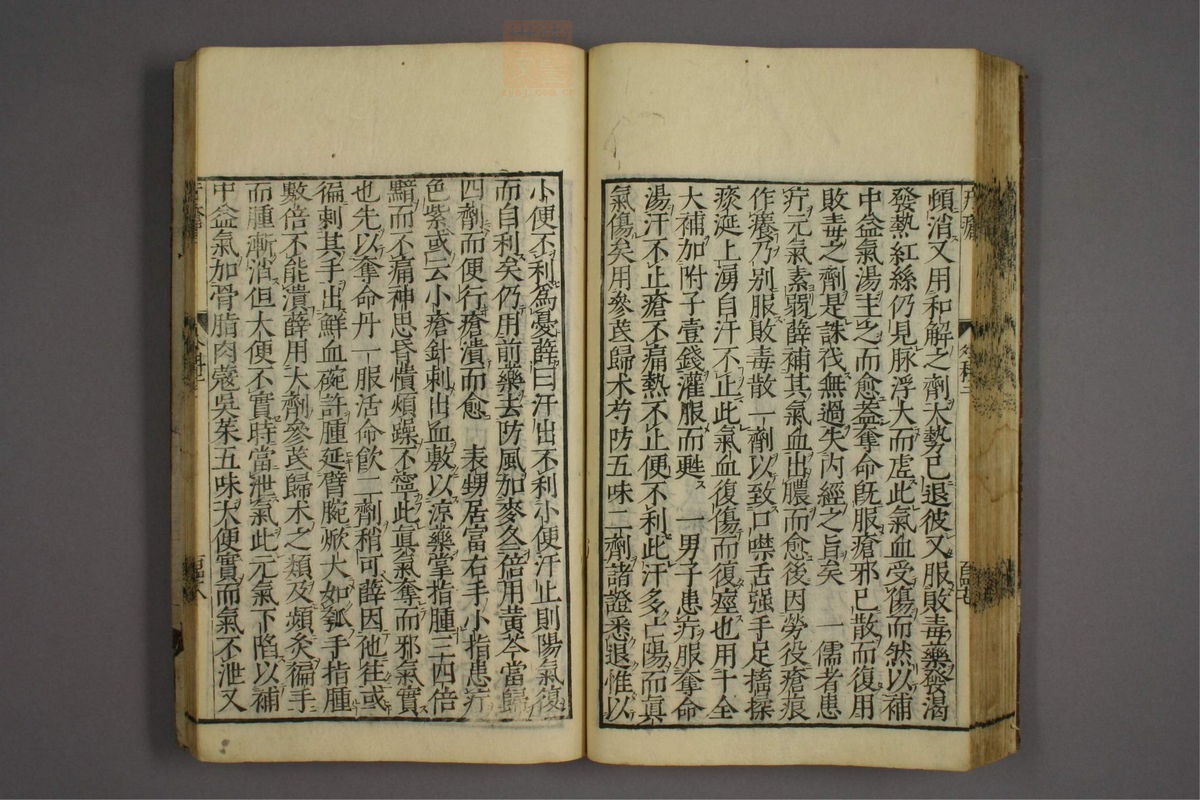 頓消又用和解之劑大勢已退彼又服敗毒藥發渴
發熱紅絲仍見脉浮大而虛此氣血受傷而然以補
中益氣湯主之而愈蓋奪命旣服瘡邪已散而復用
敗毒之劑是誅伐無過失內經之旨矣 一儒者患
疔元氣素弱薛補其氣血出膿而愈後因勞役瘡痕
作癢乃别服敗毒散一劑以致口噤舌强手足搐搦
痰延上湧自汗不止此氣血復傷而復痙也用十全
大補加附子壹錢灌服而甦 一男子患疔服奪命
湯汗不止瘡不痛熱不止便不利此汗多亡陽而眞
氣傷矣用參茋歸术芍防五味二劑諸證悉退惟以
小便不利爲憂薛曰汗出不利小便汗止則陽氣復
而自利矣仍用前藥去防風加麥冬倍用黄芩當歸
四劑而便行瘡潰而愈 表甥居富右手小指患疔
色紫或云小瘡針刺出血敷以凉藥掌指腫三四倍
黯而不痛神思昏憒煩躁不寧此眞氣奪而邪氣實
也先以奪命丹一服活命飮二劑稍可薛因他徃或
徧刺其手出鮮血碗許腫延臂腕焮大如瓠手指腫
數倍不能潰薛用大劑參茋歸术之類及頻灸徧手
而腫漸消但大便不實時當泄氣此元氣下陷以補
中益氣加骨脂肉蔻吳茱五味大便實而氣不泄又